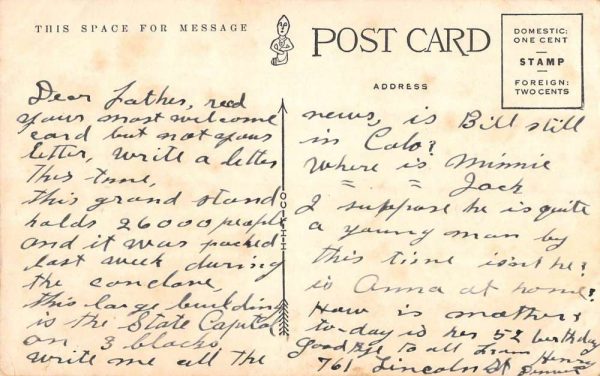 THIS SPACE FOR MESSAGE
POST CARD
ADDRESS
DOMESTIC:
ONE CENT
STAMP
FOREIGN:
TWO CENTS
Dear Father, recd
your most welcome
card but not your
letter, write a letter
this time,
this grand stand
holds 26000 people
and it was packed
last week during
the conclave,
this large building
is the State Capital
on 3 blocks,
write me all the
news, is Bill still
in Colo?
Where is Minnie
" " Jack
I suppose he is quite
a young man by
this time isnt he?
is Anna at home?
How is mother
to-day is her 52 birthday
good bye to all from Henry
761 Lincoln St Denver